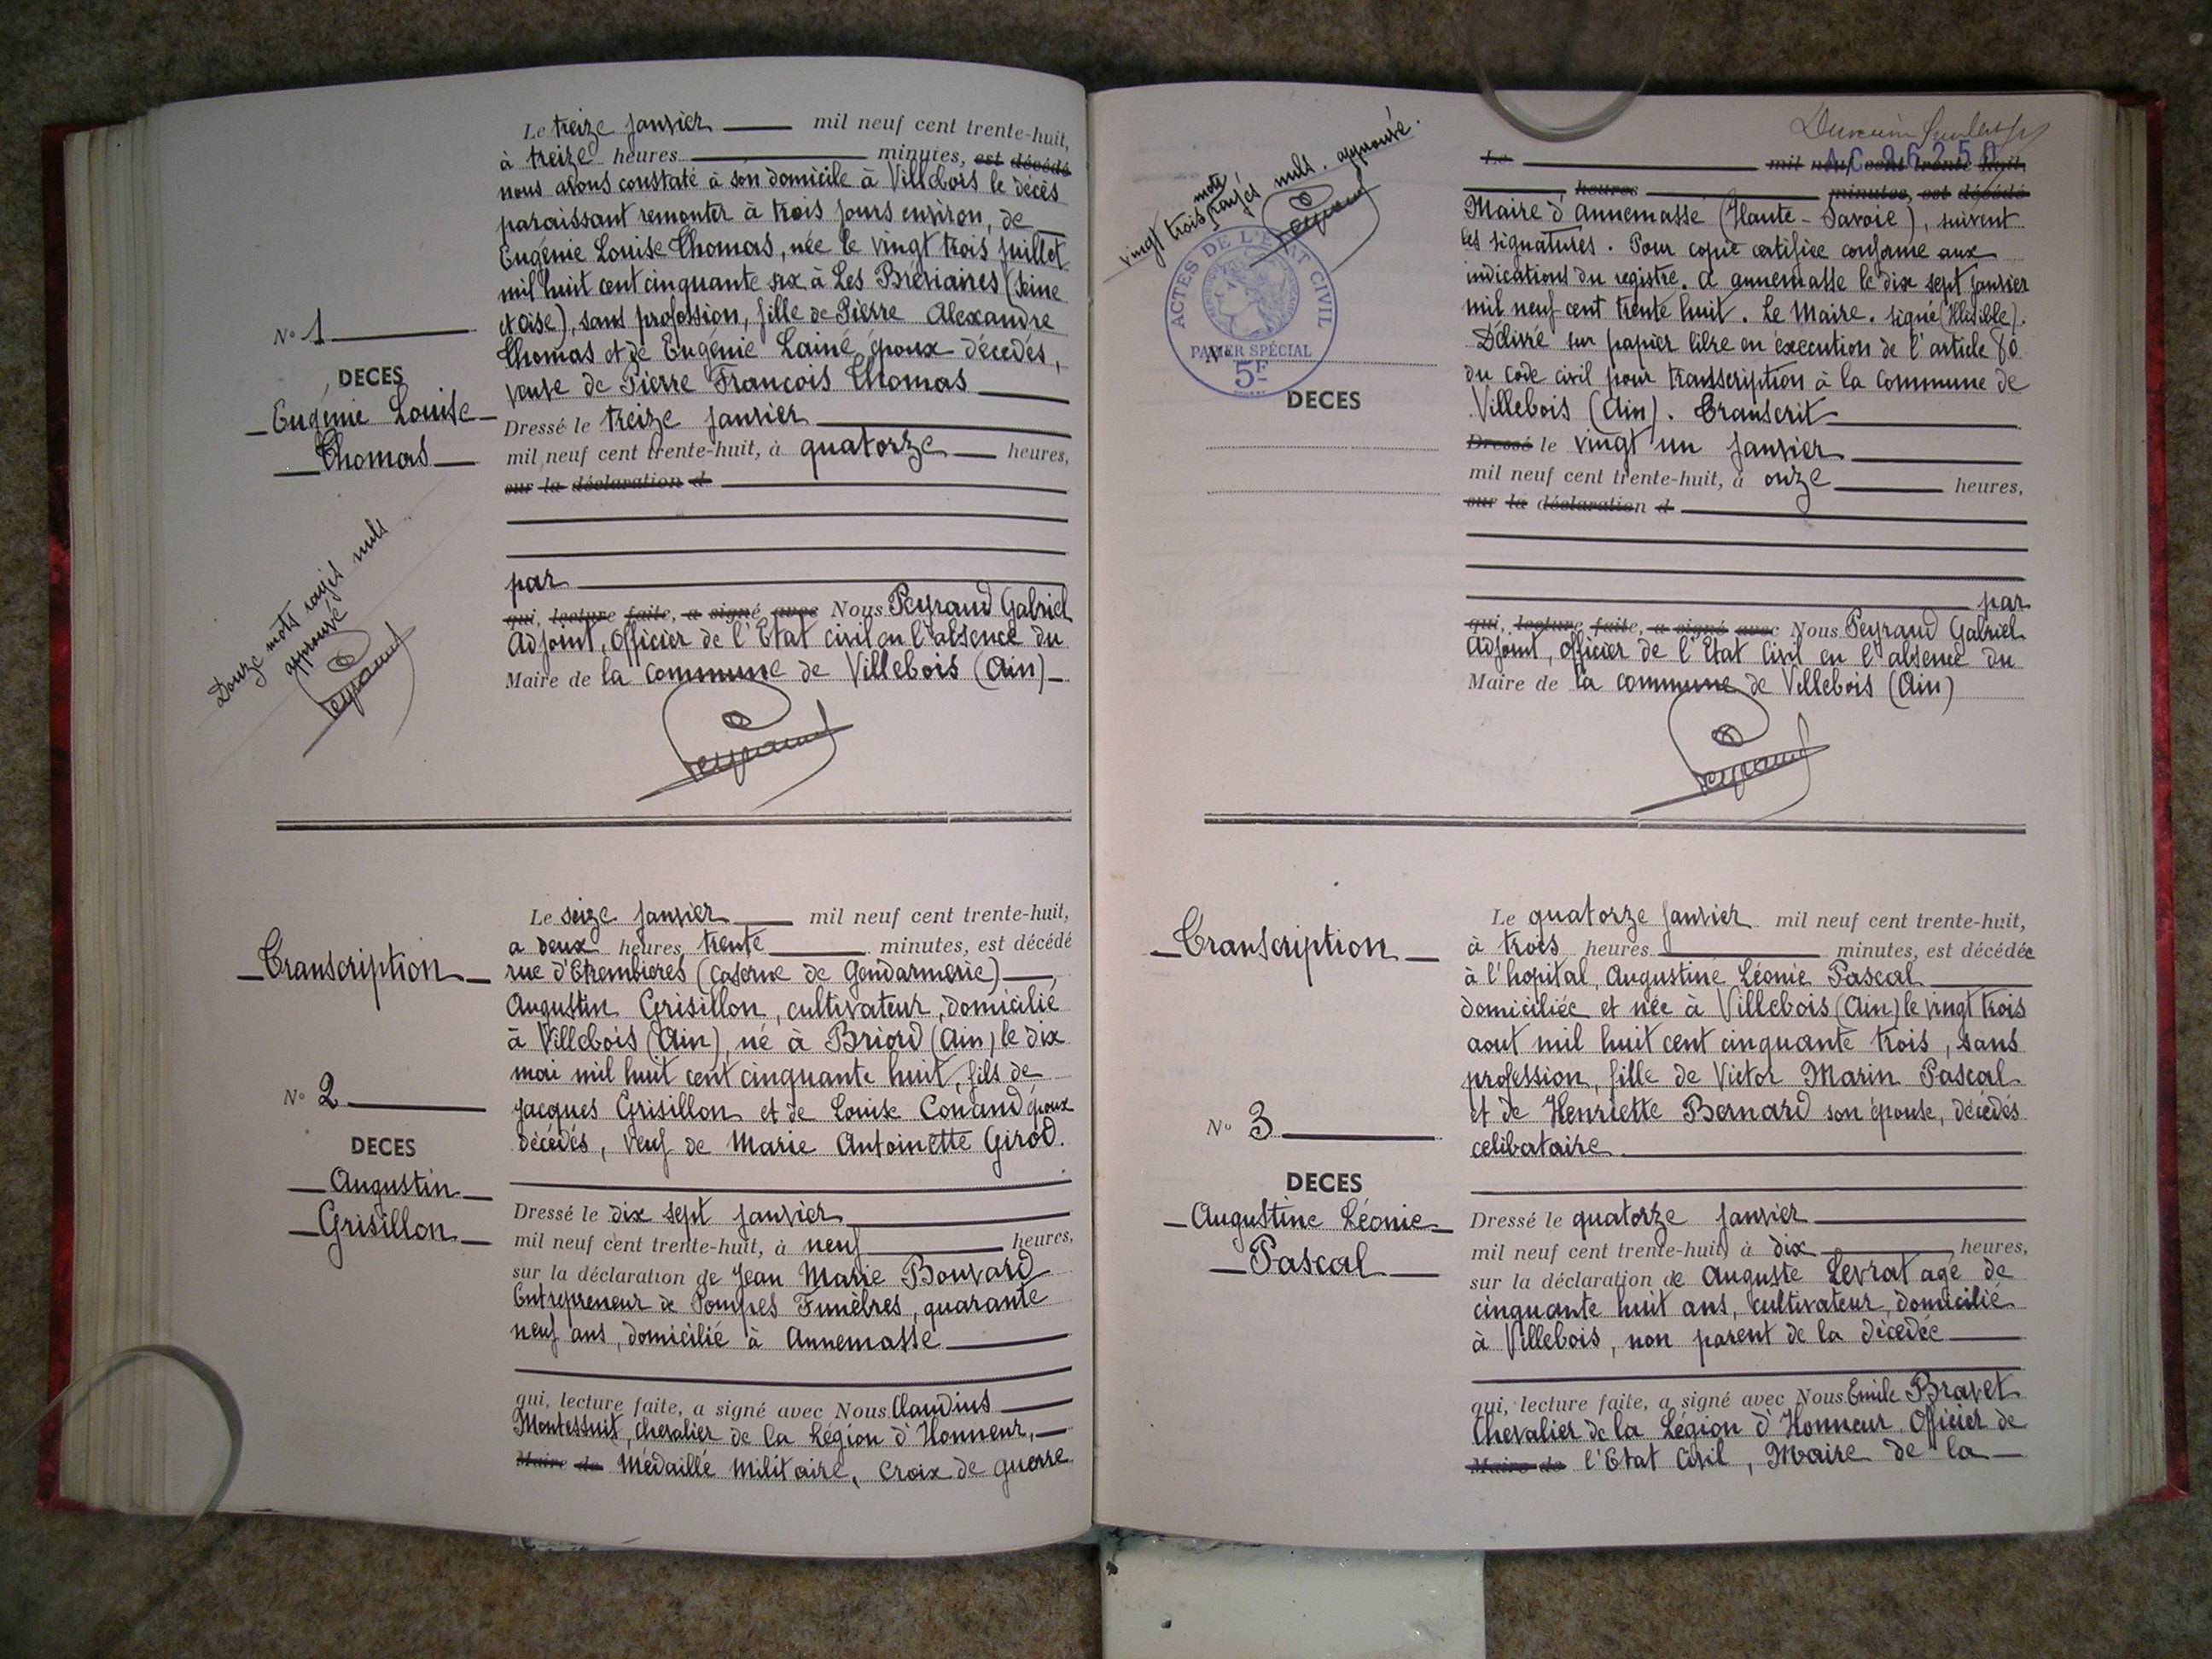 Le treize janvier mil neuf cent trente-huit,
à treize heures minutes, est décédé
nous avons constaté à son domicile à Villebois le décès
paraissant remonter à trois jours environ, de
Eugénie Louise Thomas, née le vingt trois juillet
mil huit cent cinquante six à Les Bréviaires (Seine
et Oise), sans profession, fille de Pierre Alexandre
Thomas et de Eugénie Lainé époux décédés,
veuve de Pierre François Thomas
N° 1
DECES
Eugénie Louise
Thomas
Dressé le treize janvier
mil neuf cent trente-huit, à quatorze heures,
sur la déclaration d
par
qui, lecture faite, a signé avec Nous Peyraud Gabriel
Adjoint, Officier de l'Etat civil en l'absence du
Maire de la commune de Villebois (Ain)
Douze mots rayés nuls
approuvé
Peyraud
Peyraud
Transcription
N° 2
DECES
Augustin
Grisillon
Le seize janvier mil neuf cent trente-huit,
a deux heures trente minutes, est décédé
rue d'Etrembieres (caserne de Gendarmerie)
Augustin Grisillon, cultivateur, domicilié
à Villebois (Ain), né à Briord (Ain) le dix
mai mil huit cent cinquante huit, fils de
Jacques Grisillon et de Louise Conand époux
décédés, veuf de Marie Antoinette Girod.
Dressé le dix sept janvier
mil neuf cent trente-huit, à neuf heures,
sur la déclaration de Jean Marie Bouvard
Entrepreneur de Pompes Funèbres, quarante
neuf ans, domicilié à Annemasse
qui, lecture faite, a signé avec Nous Claudius
Montessuit, chevalier de la Légion d'Honneur,
Maire de Médaillé Militaire, Croix de guerre
vingt trois mots rayés nuls. approuvé.
Peyraud
ACTES DE L'ETAT CIVIL
PAPIER SPÉCIAL
5F
N°
DECES
Le mil neuf cent trente huit,
heures minutes, est décédé
Maire d'Annemasse (Haute-Savoie), suivent
les signatures. Pour copie certifiée conforme aux
indications du registre. A Annemasse le dix sept janvier
mil neuf cent trente huit. Le Maire. signé (Illisible).
Délivré sur papier libre en execution de l'article 80
du code civil pour transcription à la commune de
Villebois (Ain). Transcrit
Dressé le vingt un janvier
mil neuf cent trente-huit, à onze heures,
sur la déclaration d
par
qui, lecture faite, a signé avec Nous Peyraud Gabriel
Adjoint, Officier de l'Etat Civil en l'absence du
Maire de la commune de Villebois (Ain)
Peyraud
Transcription
N° 3
DECES
Augustine Léonie
Pascal
Le quatorze janvier mil neuf cent trente-huit,
à trois heures minutes, est décédée
à l'hopital, Augustine Léonie Pascal
domiciliée et née à Villebois (Ain) le vingt trois
aout mil huit cent cinquante trois, sans
profession, fille de Victor Marin Pascal
et de Henriette Bernard son épouse, décédés
celibataire.
Dressé le quatorze janvier
mil neuf cent trente-huit, à dix heures,
sur la déclaration de Auguste Levrat agé de
cinquante huit ans, cultivateur, domicilié
à Villebois, non parent de la décédée
qui, lecture faite, a signé avec Nous Emile Bravet
Chevalier de la Légion d'Honneur, Officier de
Maire de l'Etat Civil, Maire de la